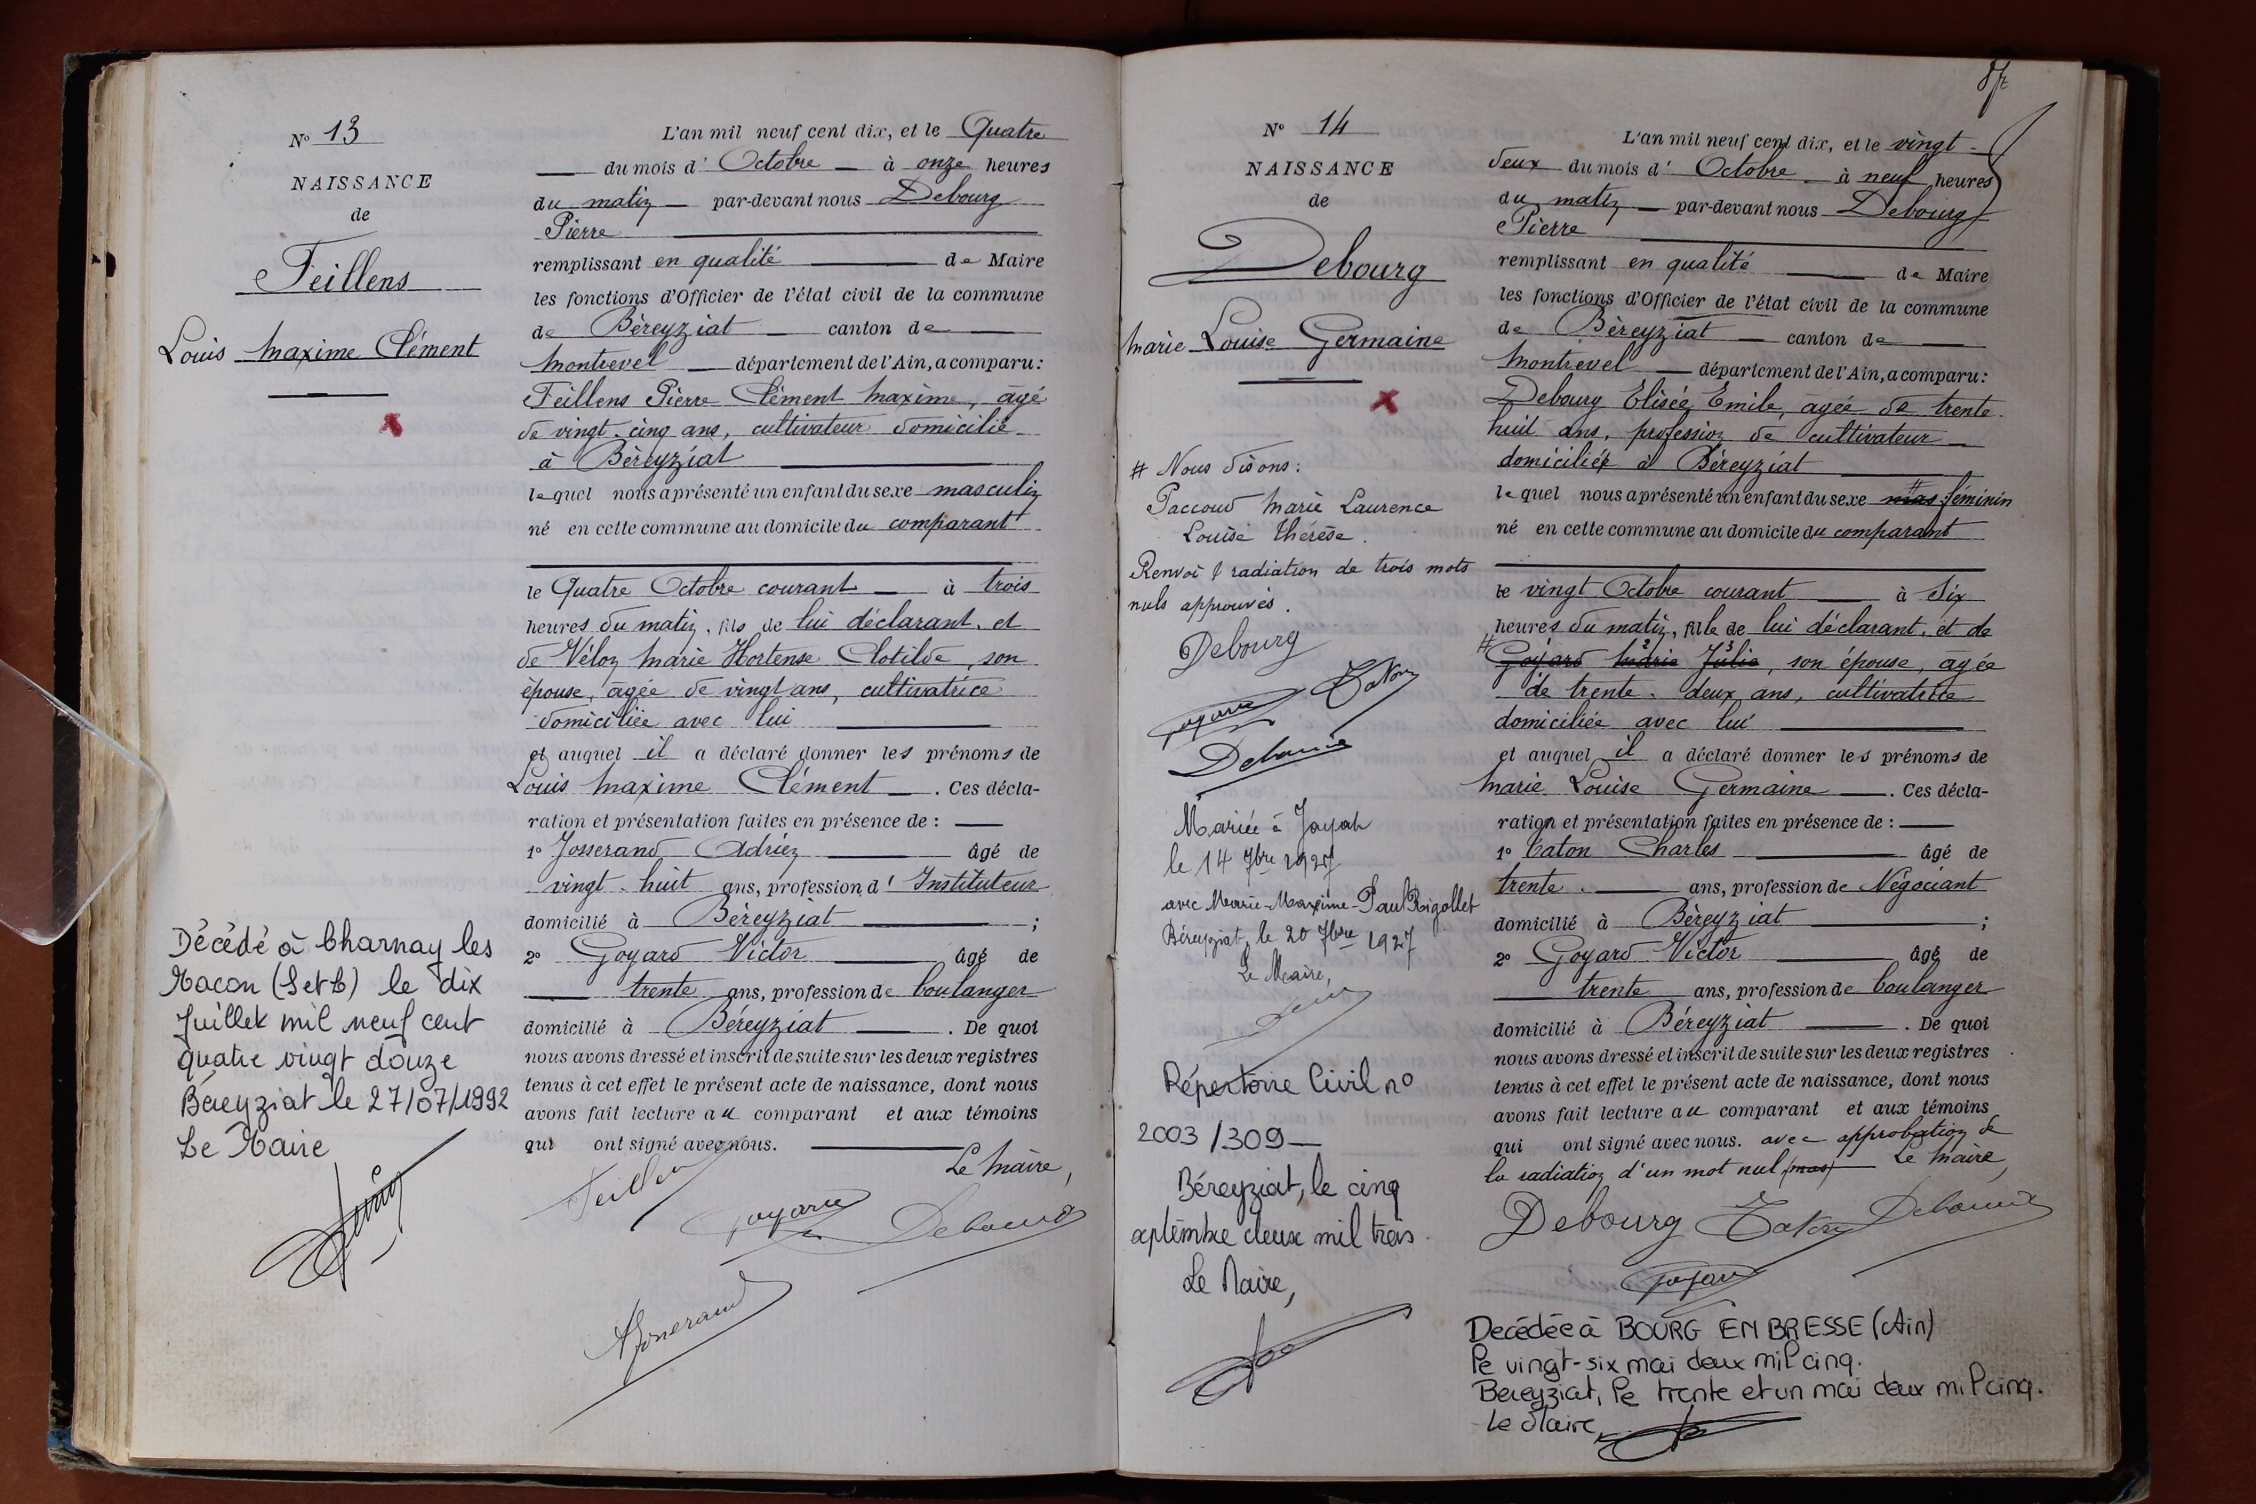 N° 13
NAISSANCE
de
Feillens
Louis Maxime Clément
Décédé à Charnay les
Macon (S et L) le dix
Juillet mil neuf cent
quatre vingt douze
Béreyziat le 27/07/1992
Le Maire
L'an mil neuf cent dix, et le Quatre
du mois d' Octobre à onze heures
du matin par-devant nous Debourg
Pierre
remplissant en qualité de Maire
les fonctions d'Officier de l'état civil de la commune
de Béreyziat canton de
Montrevel département de l'Ain, a comparu :
Feillens Pierre Clément Maxime, âgé
de vingt-cinq ans, cultivateur domicilié
à Béreyziat
lequel nous a présenté un enfant du sexe masculin
né en cette commune au domicile du comparant
le Quatre Octobre courant à trois
heures du matin, fils de lui déclarant, et
de Vélon Marie Hortense Clotilde, son
épouse, âgée de vingt ans, cultivatrice
domiciliée avec lui
et auquel il a déclaré donner les prénoms de
Louis Maxime Clément . Ces décla-
ration et présentation faites en présence de :
1° Josserand Adrien âgé de
vingt-huit ans, profession d' Instituteur
domicilié à Béreyziat ;
2° Goyard Victor âgé de
trente ans, profession de boulanger
domicilié à Béreyziat . De quoi
nous avons dressé et inscrit de suite sur les deux registres
tenus à cet effet le présent acte de naissance, dont nous
avons fait lecture au comparant et aux témoins
qui ont signé avec nous.
Le Maire,
Feillens
Goyard Debourg
AJosserand
87
N° 14
NAISSANCE
de
Debourg
Marie Louise Germaine
# Nous disons :
Paccoud Marie Laurence
Louise Thérèse.
Renvoi & radiation de trois mots
nuls approuvés.
Debourg
Caton
Goyard
Debourg
Mariée à Jayat
le 14 7bre 1927
avec Marie-Maxime-Paul Rigollet
Béreyziat, le 20 7bre 1927
Le Maire,
Répertoire Civil n°
2003/309
Béreyziat, le cinq
septembre deux mil trois.
Le Maire,
L'an mil neuf cent dix, et le vingt-
deux du mois d' Octobre à neuf heures
du matin par-devant nous Debourg
Pierre
remplissant en qualité de Maire
les fonctions d'Officier de l'état civil de la commune
de Béreyziat canton de
Montrevel département de l'Ain, a comparu :
Debourg Elisée Emile, âgée de trente-
huit ans, profession de cultivateur
domiciliée à Béreyziat
lequel nous a présenté un enfant du sexe mas féminin
né en cette commune au domicile du comparant
le vingt Octobre courant à Six
heures du matin, fille de lui déclarant, et de
# Goyard Marie Julie, son épouse, âgée
de trente-deux ans, cultivatrice
domiciliée avec lui
et auquel il a déclaré donner les prénoms de
Marie Louise Germaine . Ces décla-
ration et présentation faites en présence de :
1° Caton Charles âgé de
trente ans, profession de Négociant
domicilié à Béreyziat ;
2° Goyard Victor âgé de
trente ans, profession de boulanger
domicilié à Béreyziat . De quoi
nous avons dressé et inscrit de suite sur les deux registres
tenus à cet effet le présent acte de naissance, dont nous
avons fait lecture au comparant et aux témoins
qui ont signé avec nous. avec approbation de
la radiation d'un mot nul (mas) Le Maire,
Debourg Caton Debourg
Goyard
Decédée à BOURG EN BRESSE (Ain)
le vingt-six mai deux mil cinq.
Bereyziat, le trente et un mai deux mil cinq.
Le Maire,